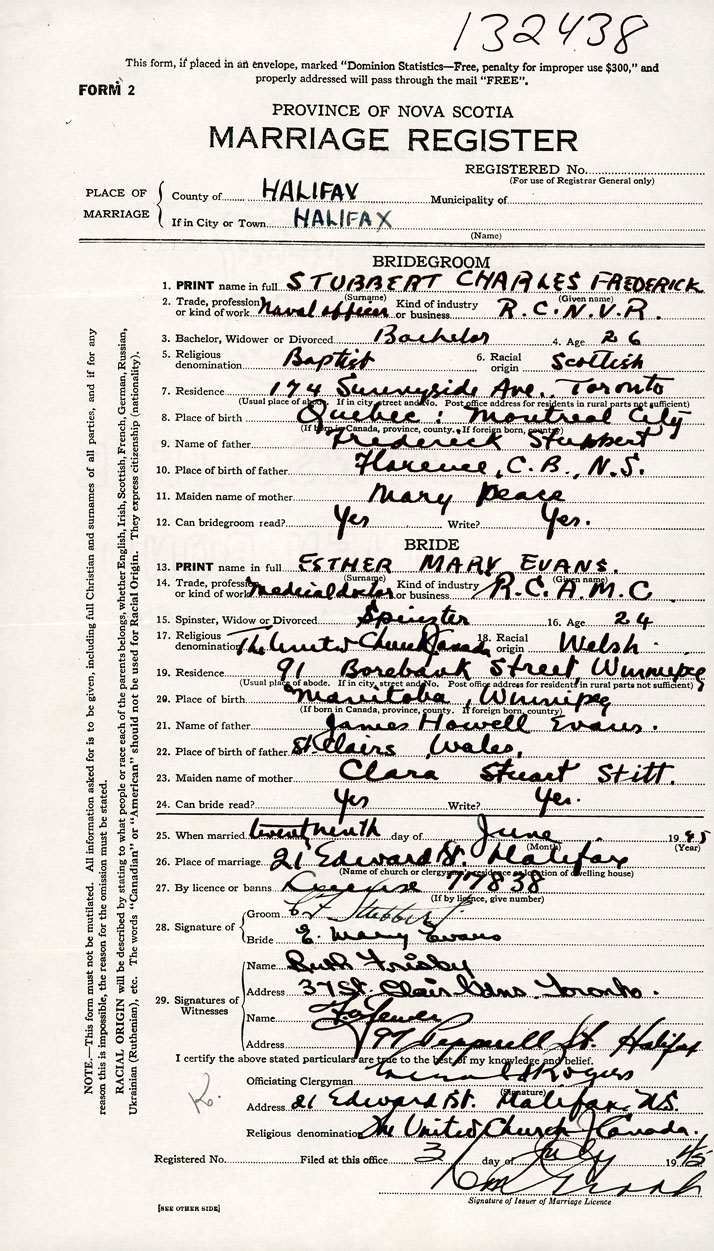 132438
This form, if placed in an envelope, marked "Dominion Statistics—Free, penalty for improper use $300," and
properly addressed will pass through the mail "FREE".
FORM 2
PROVINCE OF NOVA SCOTIA
MARRIAGE REGISTER
REGISTERED No.
(For use of Registrar General only)
PLACE OF MARRIAGE
County of HALIFAX Municipality of
If in City or Town HALIFAX
(Name)
BRIDEGROOM
1. PRINT name in full STUBBERT CHARLES FREDERICK
(Surname) (Given name)
2. Trade, profession or kind of work Naval officer Kind of industry or business R.C.N.V.R.
3. Bachelor, Widower or Divorced Bachelor 4. Age 26
5. Religious denomination Baptist 6. Racial origin Scottish
7. Residence 174 Sunnyside Ave., Toronto
(Usual place of abode. If in city, street and No. Post office address for residents in rural parts not sufficient)
8. Place of birth Quebec: Montreal City
(If born in Canada, province, county. If foreign born, country)
9. Name of father Frederick Stubbert
10. Place of birth of father Florence, C.B., N.S.
11. Maiden name of mother Mary Peace
12. Can bridegroom read? Yes Write? Yes.
BRIDE
13. PRINT name in full ESTHER MARY EVANS.
(Surname) (Given name)
14. Trade, profession or kind of work Medical doctor Kind of industry or business R.C.A.M.C
15. Spinster, Widow or Divorced Spinster 16. Age 24
17. Religious denomination The United Church Canada 18. Racial origin Welsh.
19. Residence 91 Borebank Street, Winnipeg
(Usual place of abode. If in city, street and No. Post office address for residents in rural parts not sufficient)
20. Place of birth Manitoba, Winnipeg
(If born in Canada, province, county. If foreign born, country)
21. Name of father James Howell Evans.
22. Place of birth of father St. Clairs, Wales,
23. Maiden name of mother Clara Stuart Stitt.
24. Can bride read? Yes Write? Yes.
25. When married day of June 1945
(Month) (Year)
26. Place of marriage 21 Edward St. Halifax
(Name of church or clergyman's residence or location of dwelling house)
27. By licence or banns License 77838
(If by licence, give number)
28. Signature of
Groom C F Stubbert
Bride E. Mary Evans
29. Signatures of Witnesses
Name Ruth Frisby
Address 37 St. Clair Gdns Toronto.
Name
Address 97 Pepperell St. Halifax
I certify the above stated particulars are true to the best of my knowledge and belief.
Officiating Clergyman Rogers
(Signature)
Address 21 Edward St. Halifax, N.S.
Religious denomination The United Church of Canada.
Registered No. Filed at this office 3 day of July 1945
Signature of Issuer of Marriage Licence
[SEE OTHER SIDE]
K.
NOTE.—This form must not be mutilated. All information asked for is to be given, including full Christian and surnames of all parties, and if for any
reason this is impossible, the reason for the omission must be stated.
RACIAL ORIGIN will be described by stating to what people or race each of the parents belongs, whether English, Irish, Scottish, French, German, Russian,
Ukrainian (Ruthenian), etc. The words "Canadian" or "American" should not be used for Racial Origin. They express citizenship (nationality).